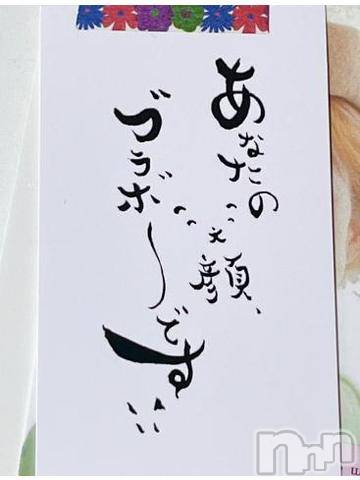 あなたの
笑顔、
ブラボーです!!
nnn